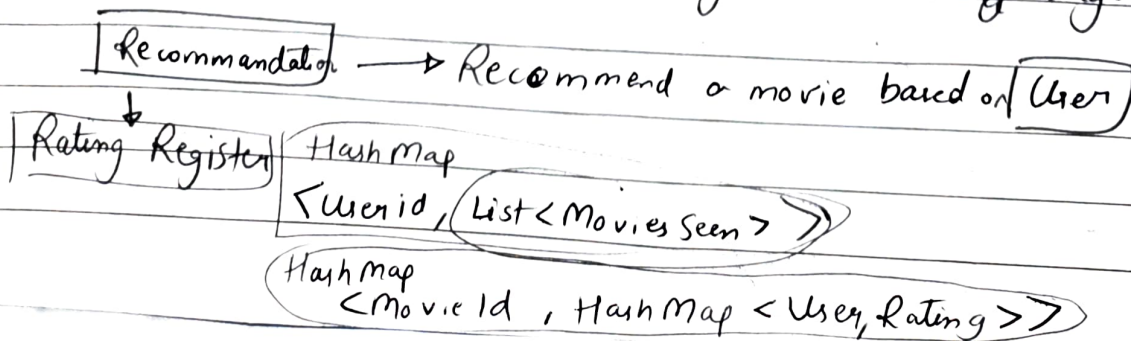 Recommandation → Recommend a movie based on User
Rating Register HashMap
<Userid, List<Movies Seen>>
HashMap
<MovieId, HashMap<User, Rating>>